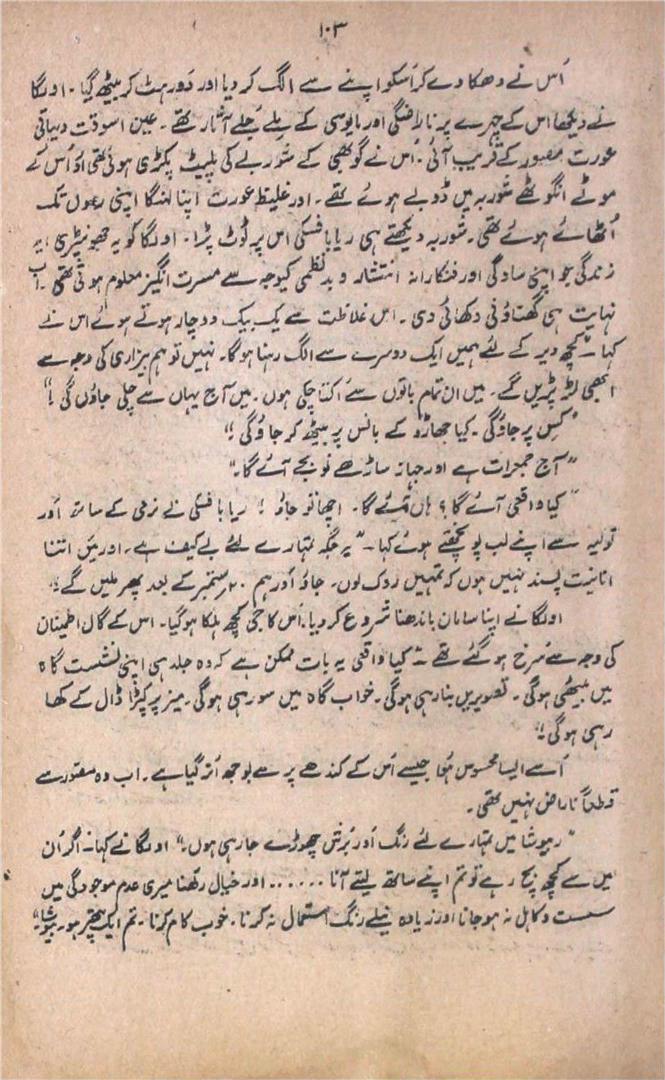 ۱۰۳
اُس نے دھکا دے کر اُسکو اپنے سے الگ کر دیا اور دُور ہٹ کر بیٹھ گیا ۔ اولگا
نے دیکھا اس کے چہرے پر ناراضگی اور مایوسی کے ملے جُلے آثار تھے ۔ عین اسوقت دیہاتی
عورت مصور کے قریب آئی ۔ اُس نے گوبھی کے شوربے کی پلیٹ پکڑی ہوئی تھی اور اُس کے
موٹے انگوٹھے شوربہ میں ڈوبے ہوئے تھے ۔ اور غلیظ عورت اپنا لہنگا اپنی
اُٹھائے ہوئے تھی ۔ شوربہ دیکھتے ہی ریابافسکی اس پر ٹوٹ پڑا ۔ اولگا کو یہ جھونپڑی
زندگی جو اپنی سادگی اور فنکارانہ انتشار و بدنظمی کیوجہ سے مسرت انگیز معلوم ہوتی تھی ۔ اب
نہایت ہی گھناؤنی دکھائی دی ۔ اس غلاظت سے یک بیک دوچار ہوتے ہوئے اس نے
کہا ۔ "کچھ دیر کے لئے ہمیں ایک دوسرے سے الگ رہنا ہوگا ۔ نہیں تو ہم بیزاری کی وجہ سے
ابھی لڑ پڑیں گے ۔ میں ان تمام باتوں سے اکتا چکی ہوں ۔ میں آج یہاں سے چلی جاؤں گی !"
"کس پر جاؤگی ۔ کیا جھاڑو کے بانس پر بیٹھ کر جاؤگی !"
"آج جمعرات ہے اور جہاز ساڑھے نو بجے آئے گا ۔"
"کیا واقعی آئے گا ؟ ہاں آئے گا ۔ اچھا تو جاؤ ! ریابافسکی نے نرمی کے ساتھ اور
تولیہ سے اپنے لب پونچھتے ہوئے کہا ۔ "یہ جگہ تمہارے لئے بے کیف ہے ۔ اور میں اتنا
انانیت پسند نہیں ہوں کہ تمہیں روک لوں ۔ جاؤ اور ہم ۲۰ ستمبر کے بعد پھر ملیں گے !"
اولگا نے اپنا سامان باندھنا شروع کر دیا ۔ اُس کا جی کچھ ہلکا ہوگیا ۔ اس کے گال اطمینان
کی وجہ سے سُرخ ہو گئے تھے ۔ "کیا واقعی یہ بات ممکن ہے کہ وہ جلد ہی اپنی نشست گاہ
میں بیٹھی ہوگی ۔ تصویریں بنا رہی ہوگی ۔ خواب گاہ میں سو رہی ہوگی ۔ میز پر کپڑا ڈال کے کھا
رہی ہوگی !"
اُسے ایسا محسوس ہُوا جیسے اُس کے کندھے پر سے بوجھ اُتر گیا ہے ۔ اب وہ مصور سے
قطعاً ناراض نہیں تھی ۔
"ریبوشا میں تمہارے لئے رنگ اور بُرش چھوڑے جا رہی ہوں ۔" اولگا نے کہا ۔ اگر اُن
میں سے کچھ بچ رہے تو تم اپنے ساتھ لیتے آنا ...... اور خیال رکھنا میری عدم موجودگی میں
سست و کاہل نہ ہو جانا اور زیادہ نیلے رنگ استعمال نہ کرنا ۔ خوب کام کرنا ۔ تم ایک